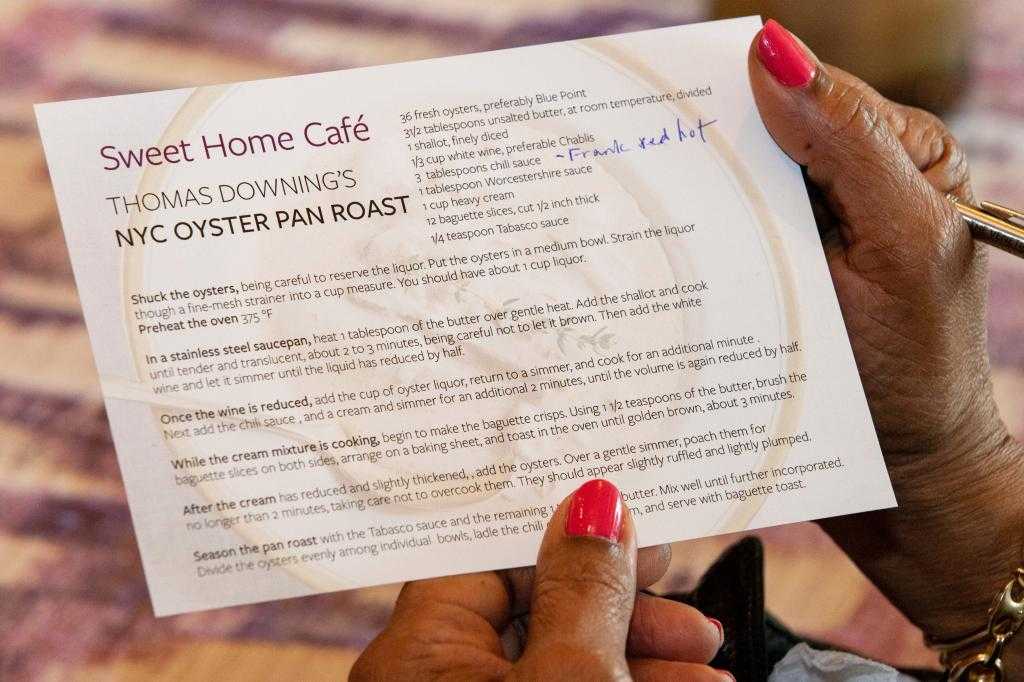 Sweet Home Café
THOMAS DOWNING'S
NYC OYSTER PAN ROAST
36 fresh oysters, preferably Blue Point
31/2 tablespoons unsalted butter, at room temperature, divided
1 shallot, finely diced
1/3 cup white wine, preferable Chablis
3 tablespoons chili sauce - Frank red hot
1 tablespoon Worcestershire sauce
1 cup heavy cream
12 baguette slices, cut 1/2 inch thick
1/4 teaspoon Tabasco sauce
Shuck the oysters, being careful to reserve the liquor. Put the oysters in a medium bowl. Strain the liquor
though a fine-mesh strainer into a cup measure. You should have about 1 cup liquor.
Preheat the oven 375 °F
In a stainless steel saucepan, heat 1 tablespoon of the butter over gentle heat. Add the shallot and cook
until tender and translucent, about 2 to 3 minutes, being careful not to let it brown. Then add the white
wine and let it simmer until the liquid has reduced by half.
Once the wine is reduced, add the cup of oyster liquor, return to a simmer, and cook for an additional minute .
Next add the chili sauce , and a cream and simmer for an additional 2 minutes, until the volume is again reduced by half.
While the cream mixture is cooking, begin to make the baguette crisps. Using 1 1/2 teaspoons of the butter, brush the
baguette slices on both sides, arrange on a baking sheet, and toast in the oven until golden brown, about 3 minutes.
After the cream has reduced and slightly thickened, , add the oysters. Over a gentle simmer, poach them for
no longer than 2 minutes, taking care not to overcook them. They should appear slightly ruffled and lightly plumped.
Season the pan roast with the Tabasco sauce and the remaining 1 butter. Mix well until further incorporated.
Divide the oysters evenly among individual bowls, ladle the chili m, and serve with baguette toast.